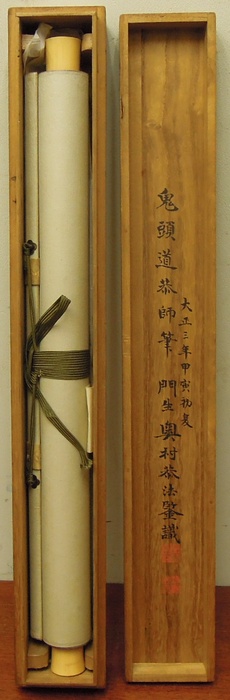 大正三年甲寅初夏
鬼頭道恭師筆 門生奥村恭法鑒識